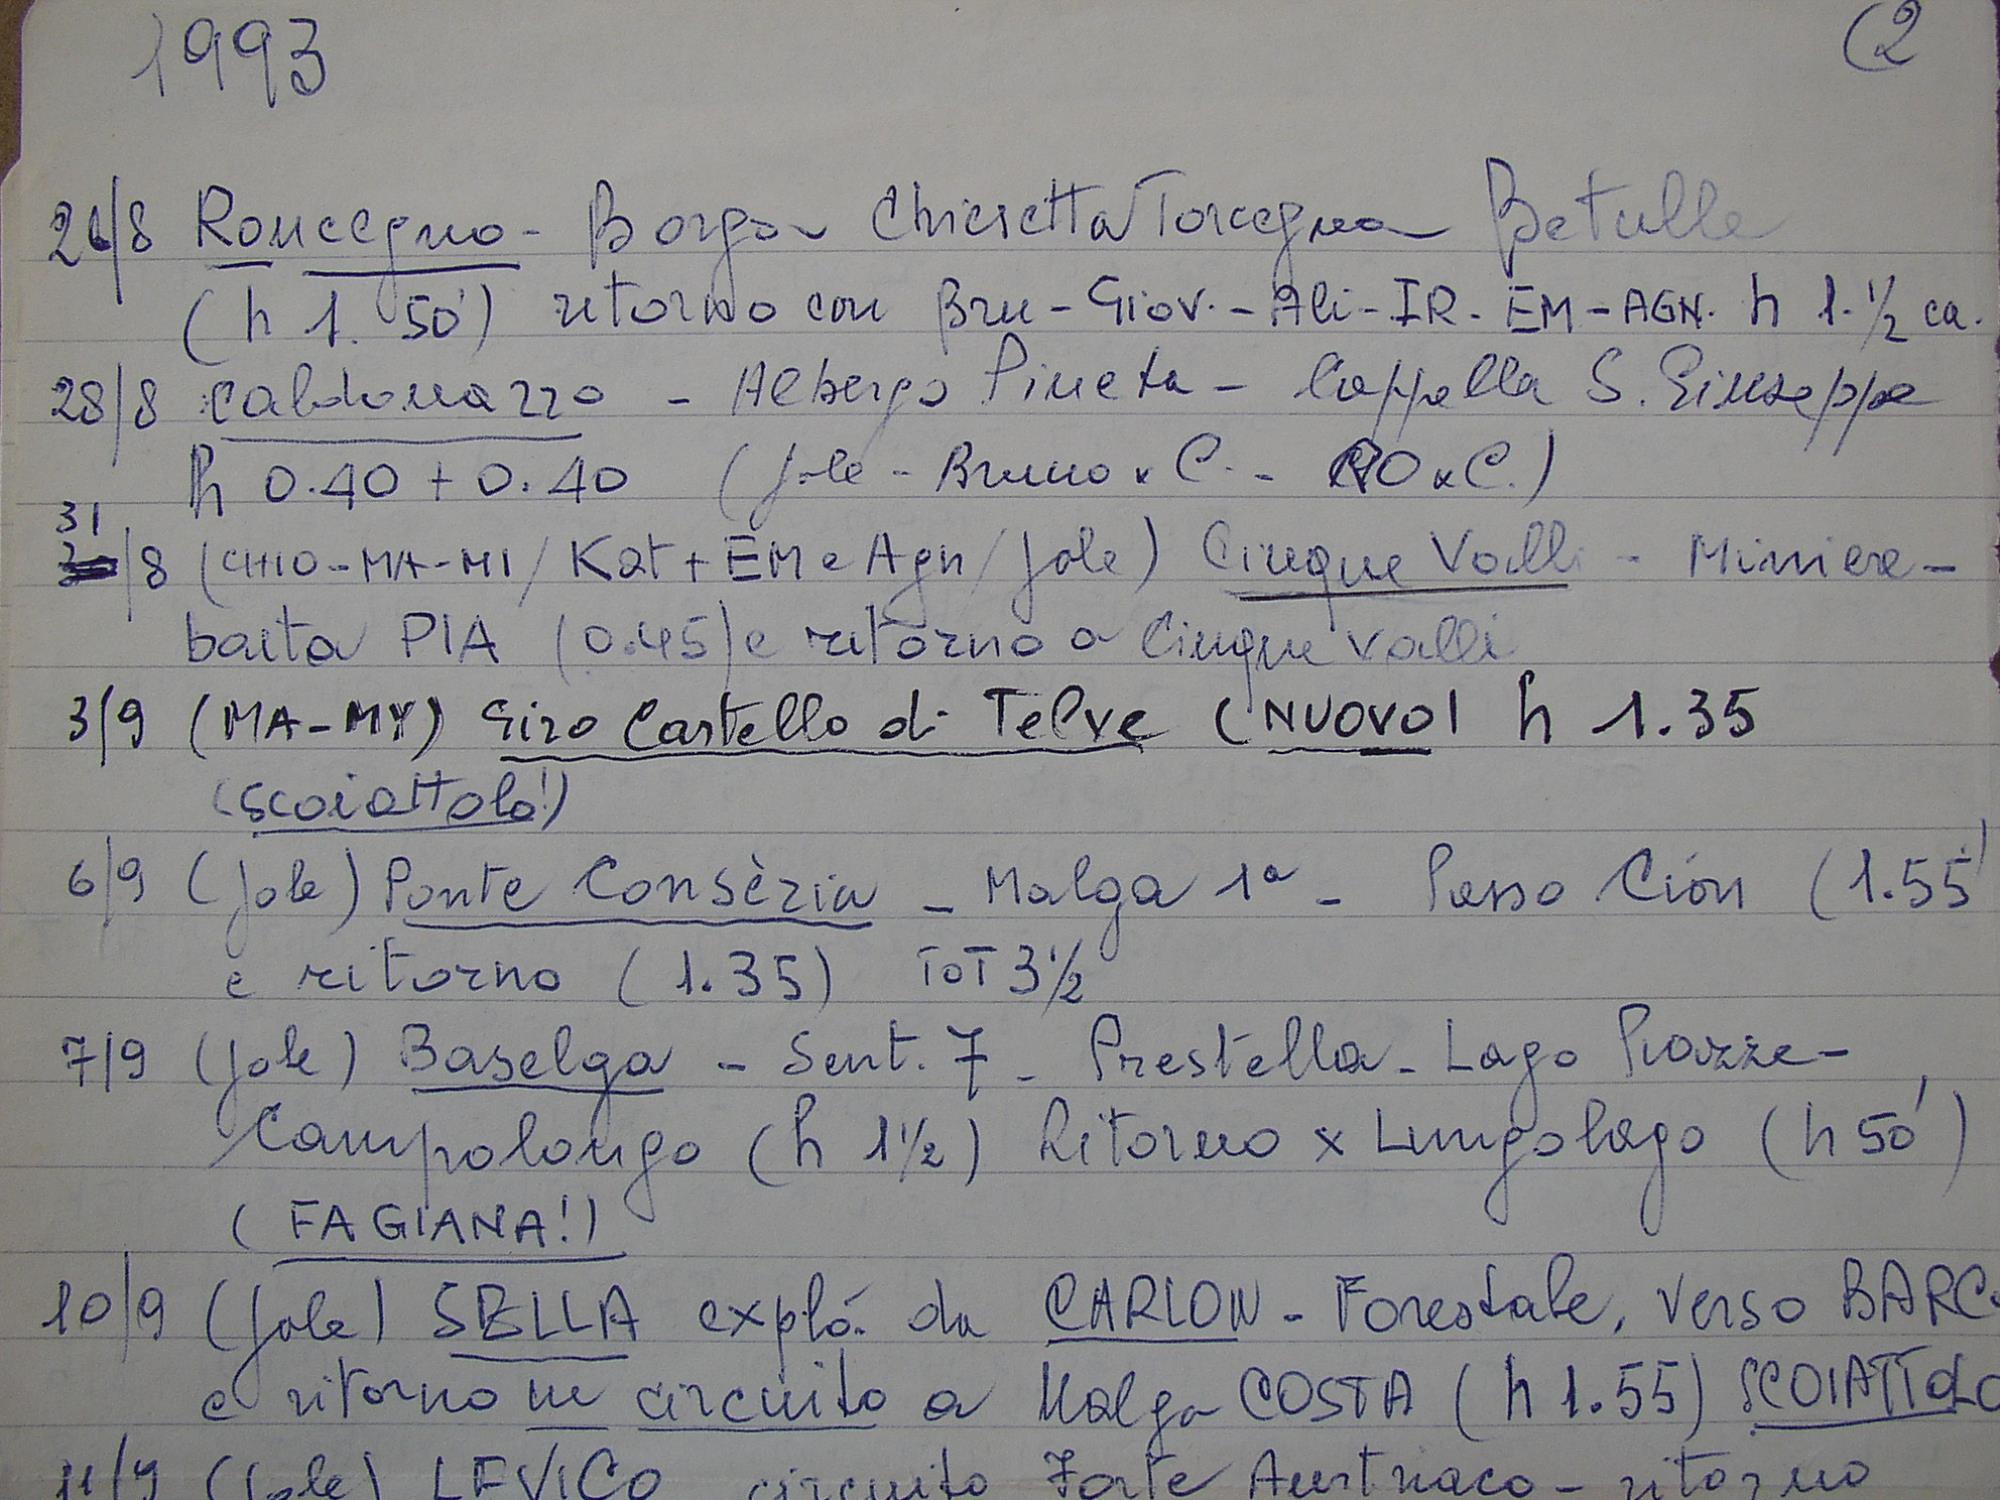 1993 (2
26/8 Roncegno - Borgo - Chiesetta Torcegno Betulle
(h 1. 50') ritorno con Bru - Giov. - Ali - IR - EM - AGN. h 1.½ ca.
28/8 Caldonazzo - Albergo Pineta - Cappella S. Giuseppe
h 0.40 + 0.40 (Jole - Bruno x C. - RO x C.)
31
/8 (CHIO - MA - MI / Kat + EM e Agn / Jole) Cinque Valli - Miniere -
baita PIA (0.45) e ritorno a Cinque Valli
3/9 (MA - MY) Giro Castello di Telve (NUOVO) h 1.35
(scoiattolo!)
6/9 (Jole) Ponte Consèria - Malga 1ª - Passo Ciòn (1.55')
e ritorno (1.35) TOT 3½
7/9 (Jole) Baselga - Sent. 7 - Prestella - Lago Piazze -
Campolongo (h 1½) Ritorno x Lungolago (h 50')
(FAGIANA!)
10/9 (Jole) SELLA explò. da CARLON - Forestale, verso BARC
e ritorno in circuito a Malga COSTA (h 1.55) SCOIATTOLO
11/9 (Jole) LEVICO circuito Forte Austriaco - ritorno